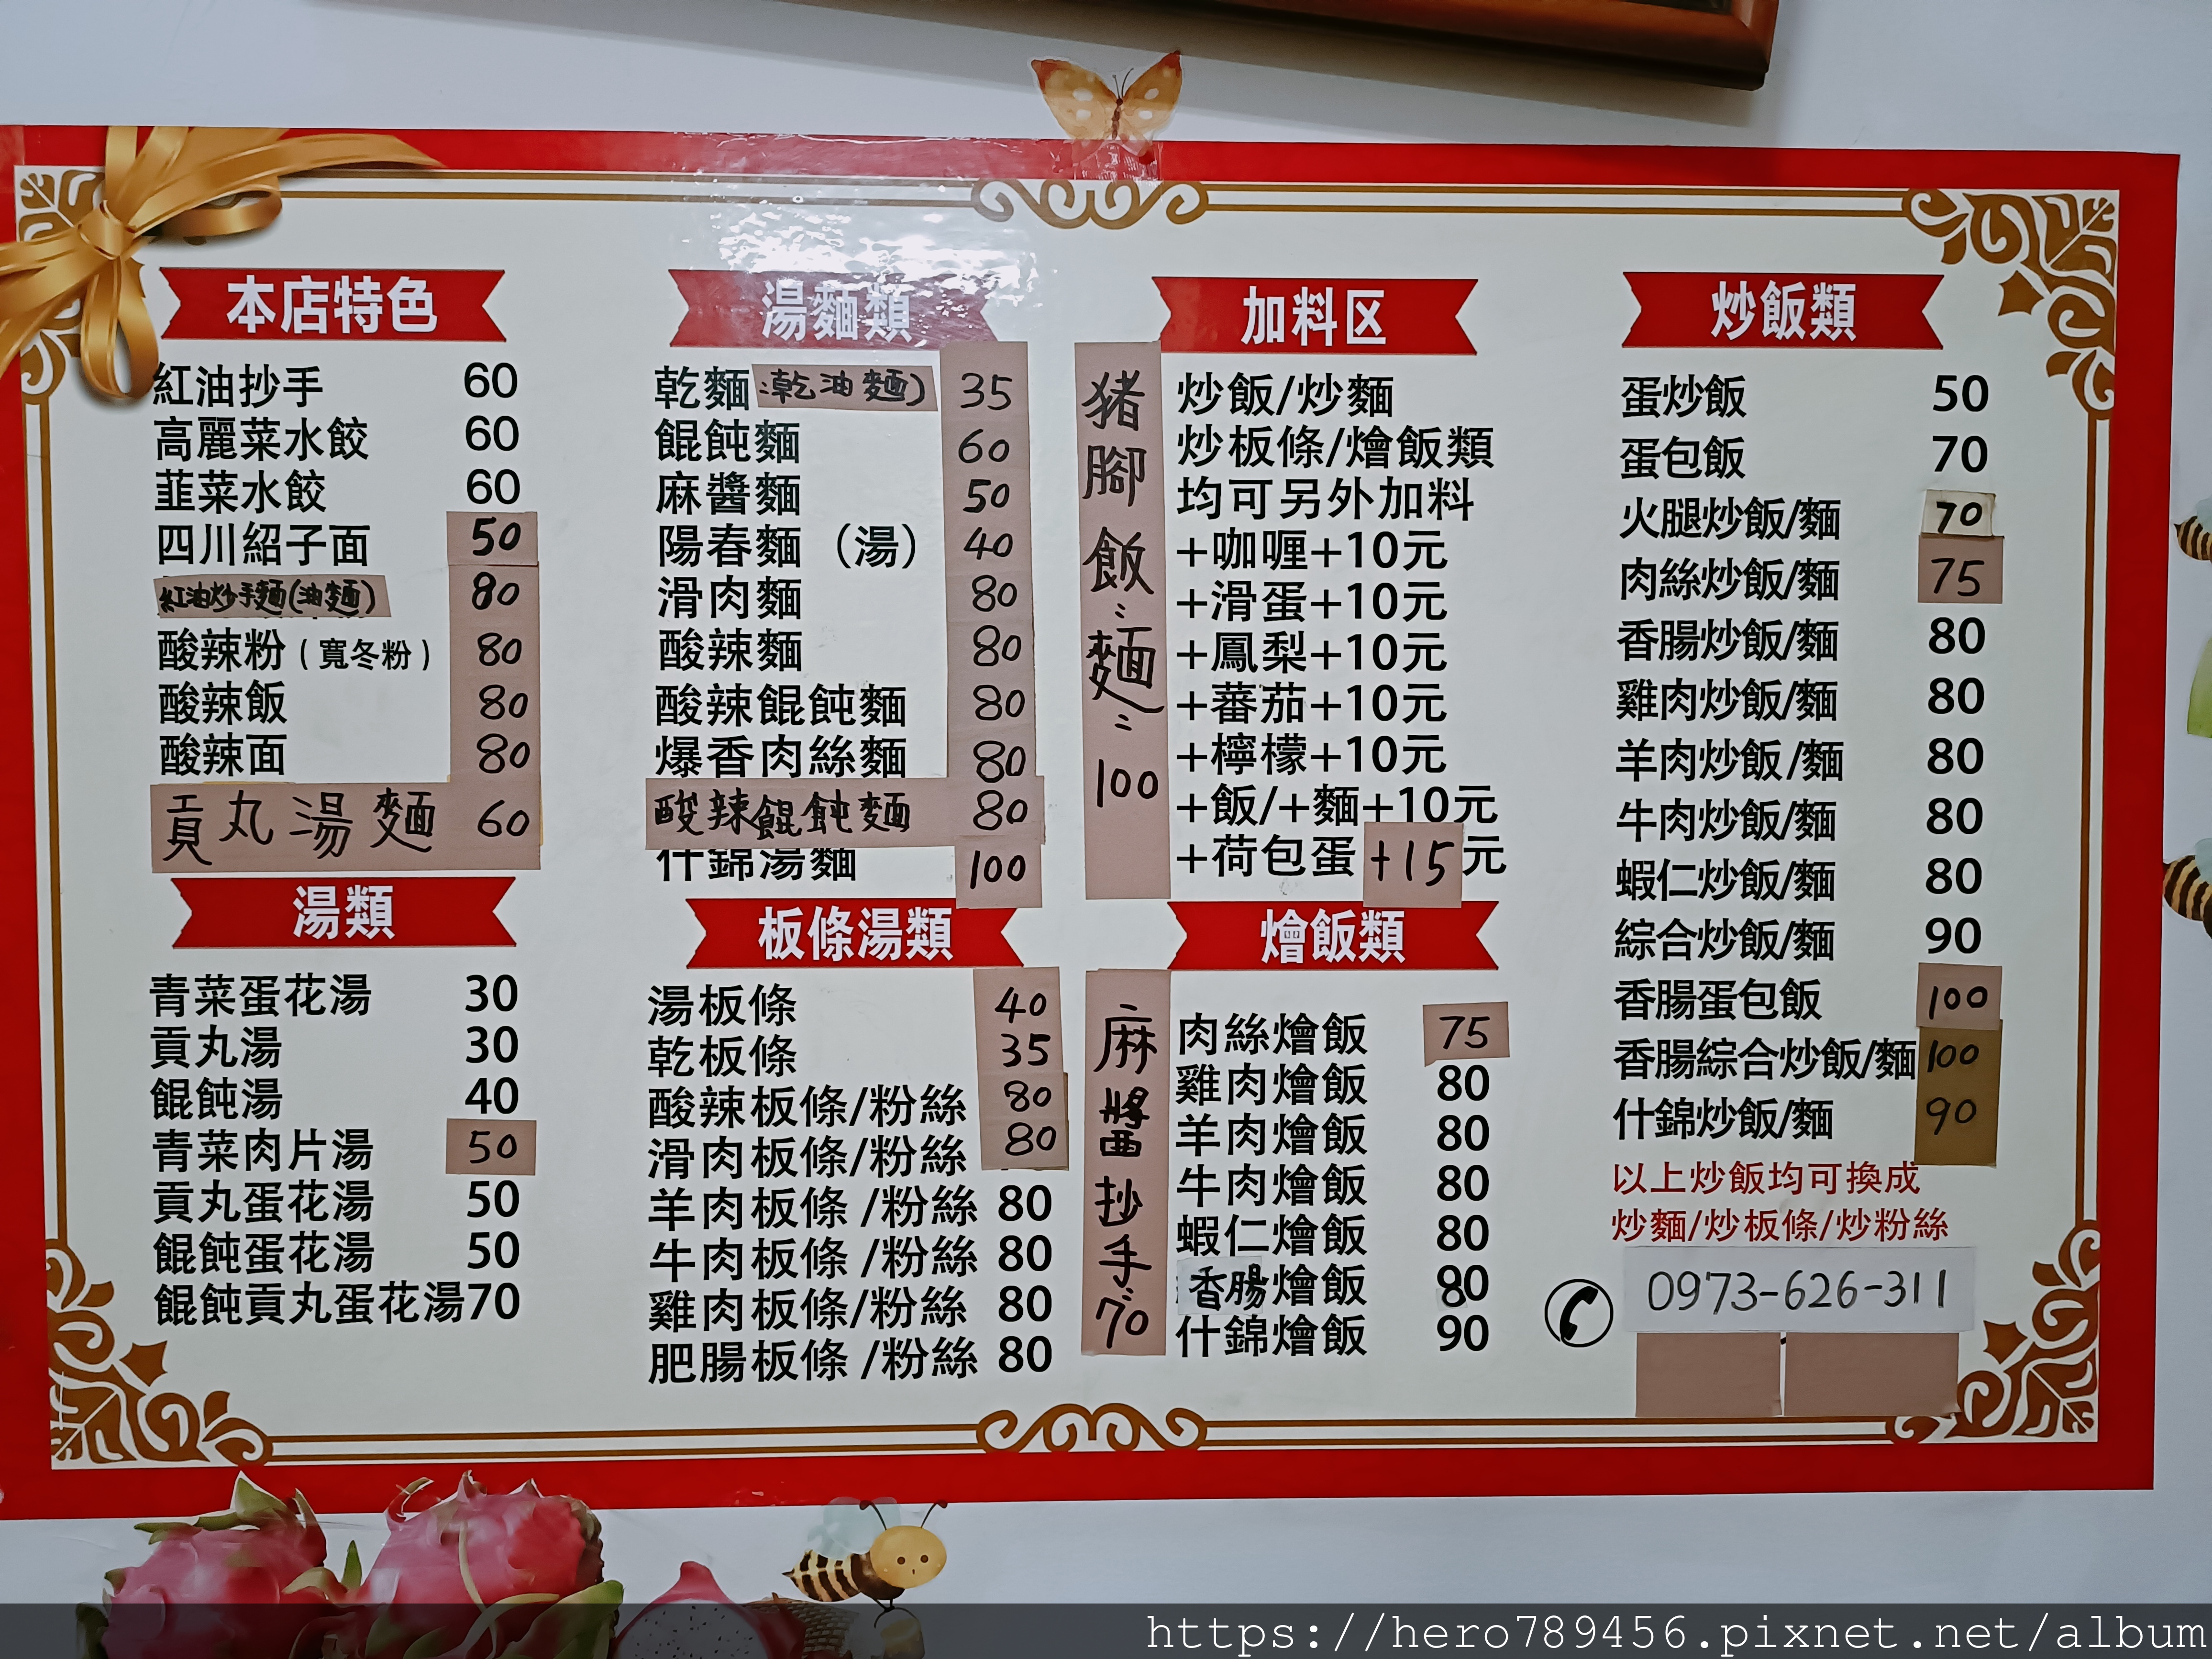 本店特色
紅油抄手 60
高麗菜水餃 60
韮菜水餃 60
四川紹子面 50
紅油炒手麵(油麵) 80
酸辣粉(寬冬粉) 80
酸辣飯 80
酸辣面 80
貢丸湯麵 60
湯類
青菜蛋花湯 30
貢丸湯 30
餛飩湯 40
青菜肉片湯 50
貢丸蛋花湯 50
餛飩蛋花湯 50
餛飩貢丸蛋花湯70
湯麵類
乾麵 乾油麵) 35
餛飩麵 60
麻醬麵 50
陽春麵(湯) 40
滑肉麵 80
酸辣麵 80
酸辣餛飩麵 80
爆香肉絲麵 80
酸辣餛飩麵 80
什錦湯麵 100
板條湯類
湯板條 40
乾板條 35
酸辣板條/粉絲 80
滑肉板條/粉絲 80
羊肉板條/粉絲 80
牛肉板條/粉絲 80
雞肉板條/粉絲 80
肥腸板條/粉絲 80
豬腳飯:麵: 100
麻醬抄手:70
加料区
炒飯/炒麵
炒板條/燴飯類
均可另外加料
+咖喱+10元
+滑蛋+10元
+鳳梨+10元
+蕃茄+10元
+檸檬+10元
+飯/+麵+10元
+荷包蛋+15元
燴飯類
肉絲燴飯 75
雞肉燴飯 80
羊肉燴飯 80
牛肉燴飯 80
蝦仁燴飯 80
香腸燴飯 80
什錦燴飯 90
炒飯類
蛋炒飯 50
蛋包飯 70
火腿炒飯/麵 70
肉絲炒飯/麵 75
香腸炒飯/麵 80
雞肉炒飯/麵 80
羊肉炒飯/麵 80
牛肉炒飯/麵 80
蝦仁炒飯/麵 80
綜合炒飯/麵 90
香腸蛋包飯 100
香腸綜合炒飯/麵 100
什錦炒飯/麵 90
以上炒飯均可換成
炒麵/炒板條/炒粉絲
0973-626-311
https://hero789456.pixnet.net/album